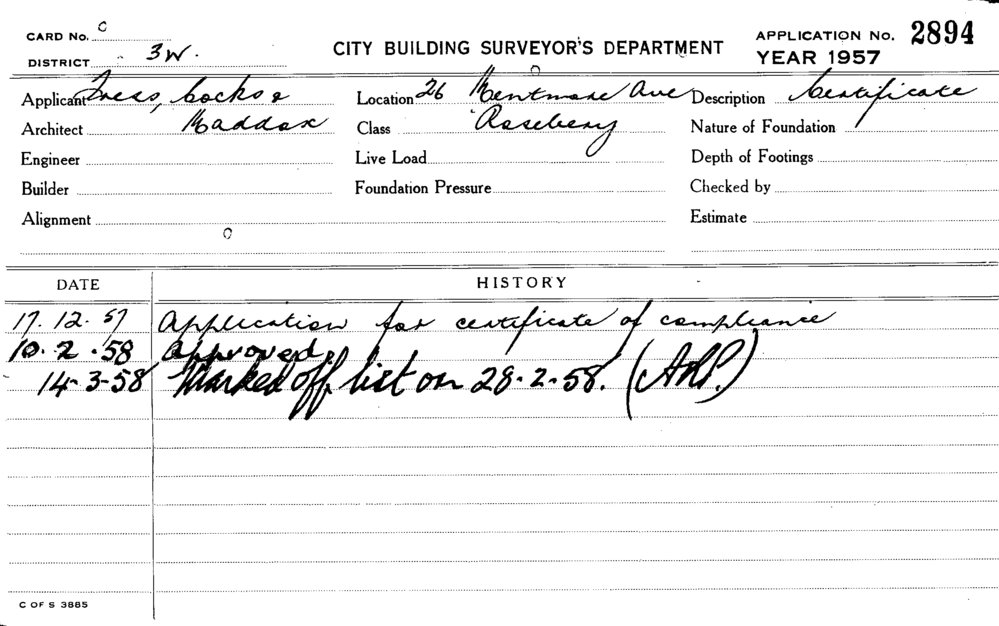 CARD No. C
DISTRICT 3W.
CITY BUILDING SURVEYOR'S DEPARTMENT
APPLICATION No. 2894
YEAR 1957
Applicant Tress, Cocks & Location 26 Mentmore Ave Description Certificate
Architect Maddox Class Rosebery Nature of Foundation
Engineer Live Load Depth of Footings
Builder Foundation Pressure Checked by
Alignment Estimate
DATE HISTORY
17.12.57 Application for certificate of compliance
10.2.58 Approved.
14-3-58 Marked off list on 28.2.58.
C OF S 3885